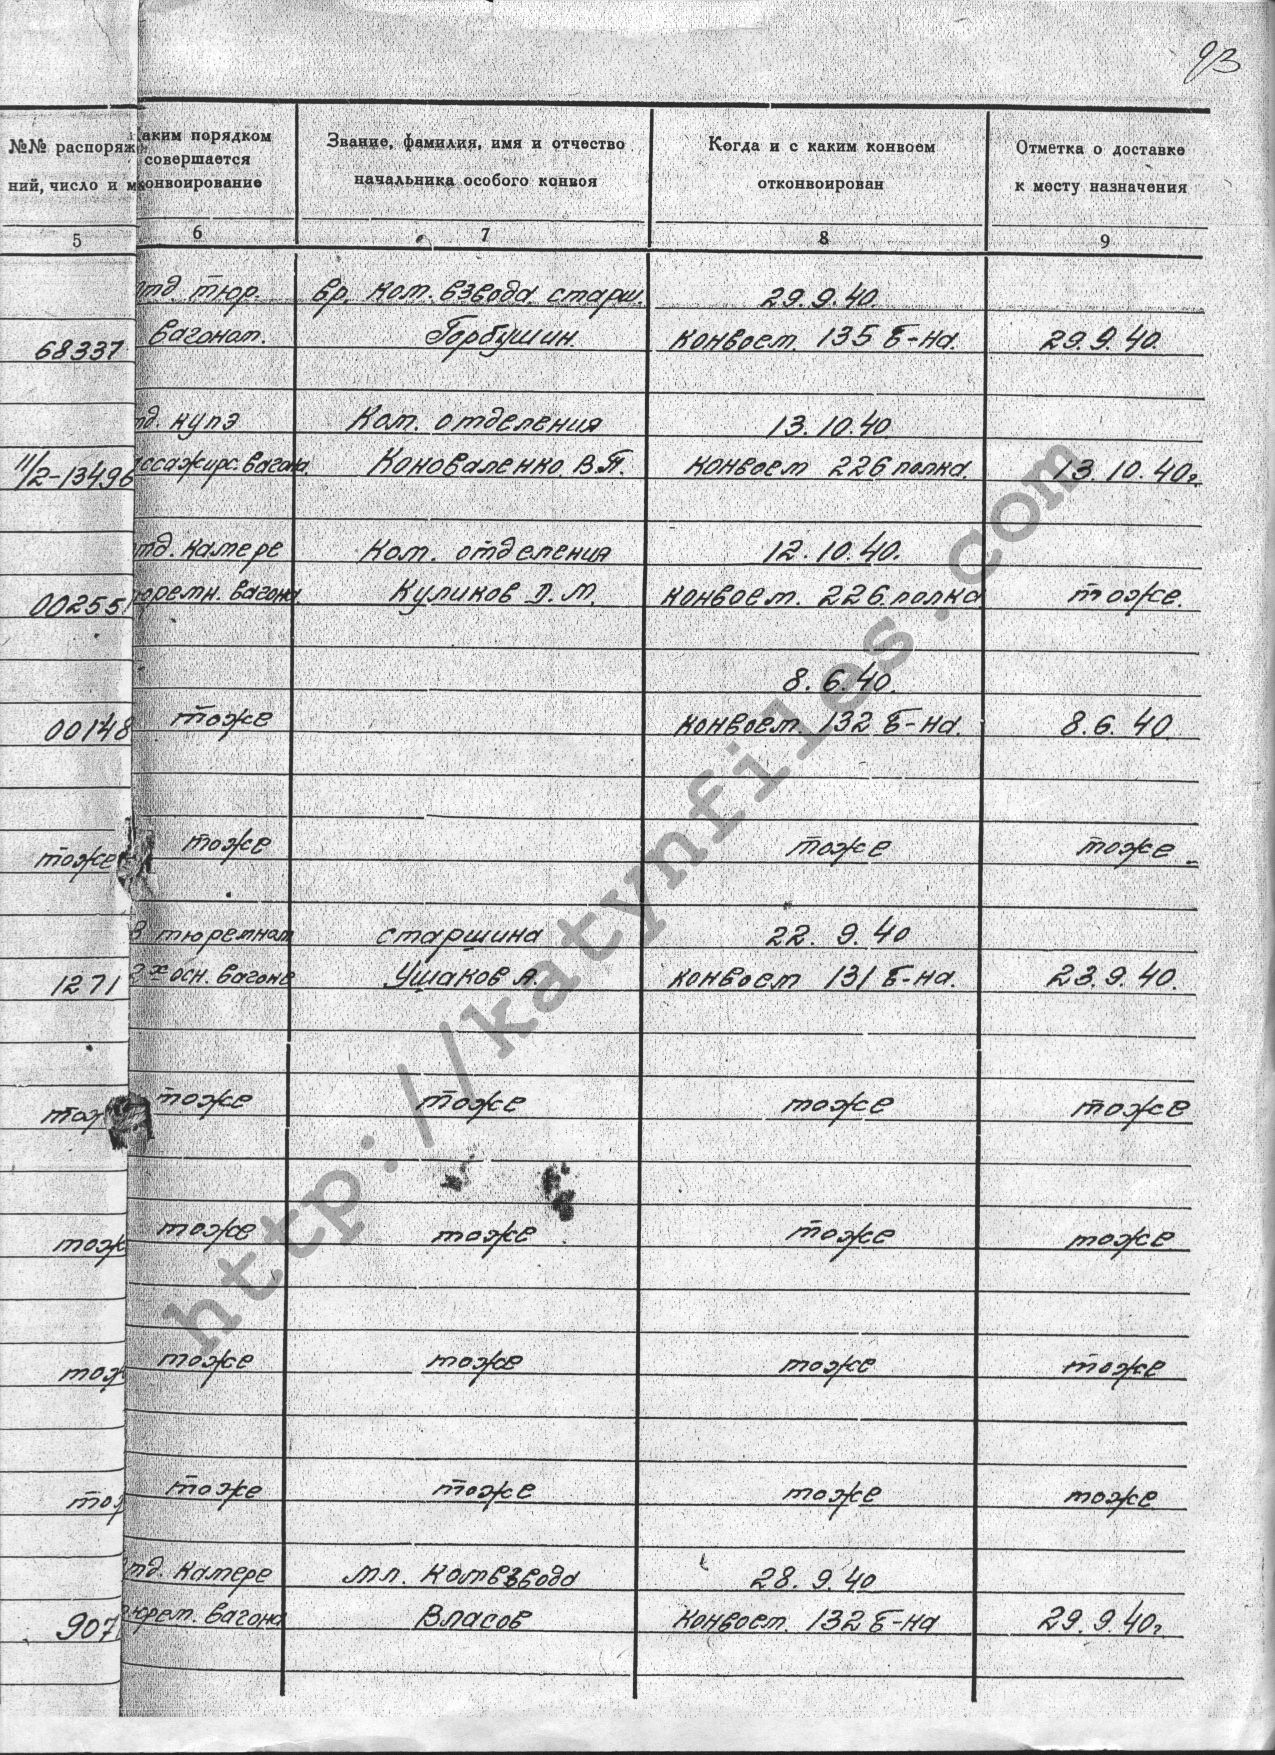 93
№№ распоряж
ний, число и м
каким порядком
совершается
конвоирование
Звание, фамилия, имя и отчество
начальника особого конвоя
Когда и с каким конвоем
отконвоирован
Отметка о доставке
к месту назначения
5 6 7 8 9
отд. тюр. вр. ком. взвода старш. 29.9.40.
68337 вагоном. Горбушин. конвоем 135 б-на. 29.9.40.
отд. купэ Ком. отделения 13.10.40
11/2-13496 ассажирс. вагона. Коноваленко В.П. конвоем 226 полка. 13.10.40г.
отд. камере Ком. отделения 12.10.40.
00255 тюремн. вагона. Куликов П.М. конвоем. 226 полка тоже.
8.6.40.
00148 тоже конвоем. 132 б-на. 8.6.40
тоже тоже тоже тоже
в тюремном старшина 22.9.40
1271 2х осн. вагоне Ушаков А. конвоем 131 б-на. 23.9.40.
тож тоже тоже тоже тоже
тож тоже тоже тоже тоже
тож тоже тоже тоже тоже
тож тоже тоже тоже тоже
отд. камере мл. комвзвода 28.9.40
907 тюрем. вагона Власов конвоем. 132 б-на 29.9.40г.
http://katynfiles.com